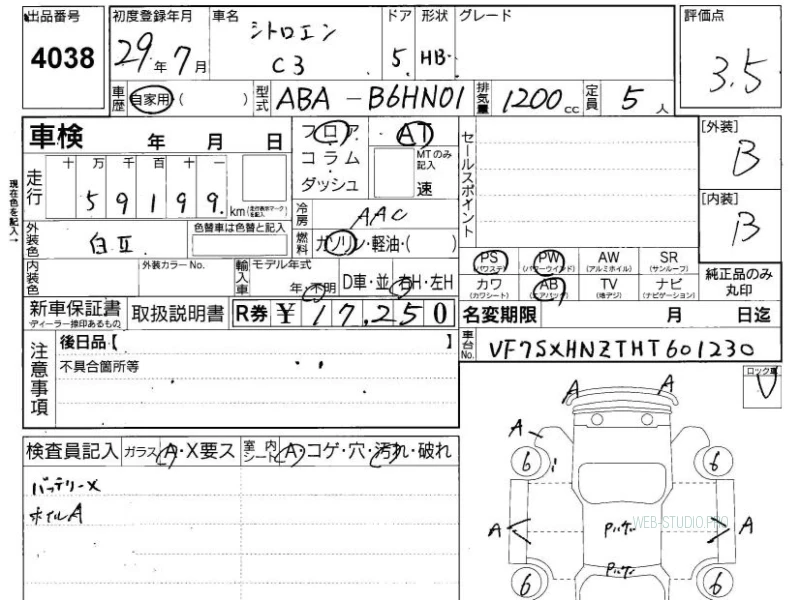 出品番号 初度登録年月 車名 ドア 形状 グレード 評価点
4038 29年 7月 シトロエン C3 5. HB 3.5
車歴 自家用・( ) 型式 ABA-B6HN01 排気量 1200cc 定員 5人
車検 年 月 日 フロア・ AT セールスポイント [外装]
コラム・ MTのみ記入 B
走行 十 万 千 百 十 一
5 9 1 9 9. km(走行表示マークを記入) ダッシュ 速 [内装]
現在色を記入→ 冷房 AAC B
外装色 白 色替車は色替と記入 燃料 ガソリン・軽油・( )
PS(パワステ) PW(パワーウインド) AW(アルミホイル) SR(サンルーフ) 純正品のみ丸印
内装色 外装カラーNo. 輸入車 モデル年式 年・不明 D車・並 右H・左H
カワ(カワシート) AB(エアバッグ) TV(地デジ) ナビ(ナビゲーション)
新車保証書 ディーラー捺印あるもの 取扱説明書 R券 ¥17,250 名変期限 月 日迄
注意事項 後日品【 】 車台No. VF7SXHNZTHT601230
不具合箇所等 ロック車 V
A A
検査員記入 ガラス A・X要ス 室内シート A・コゲ・穴・汚れ・破れ A
6 6
バッテリーX
ホイルA
A A
WEB-STUDIO.PRO
6 6